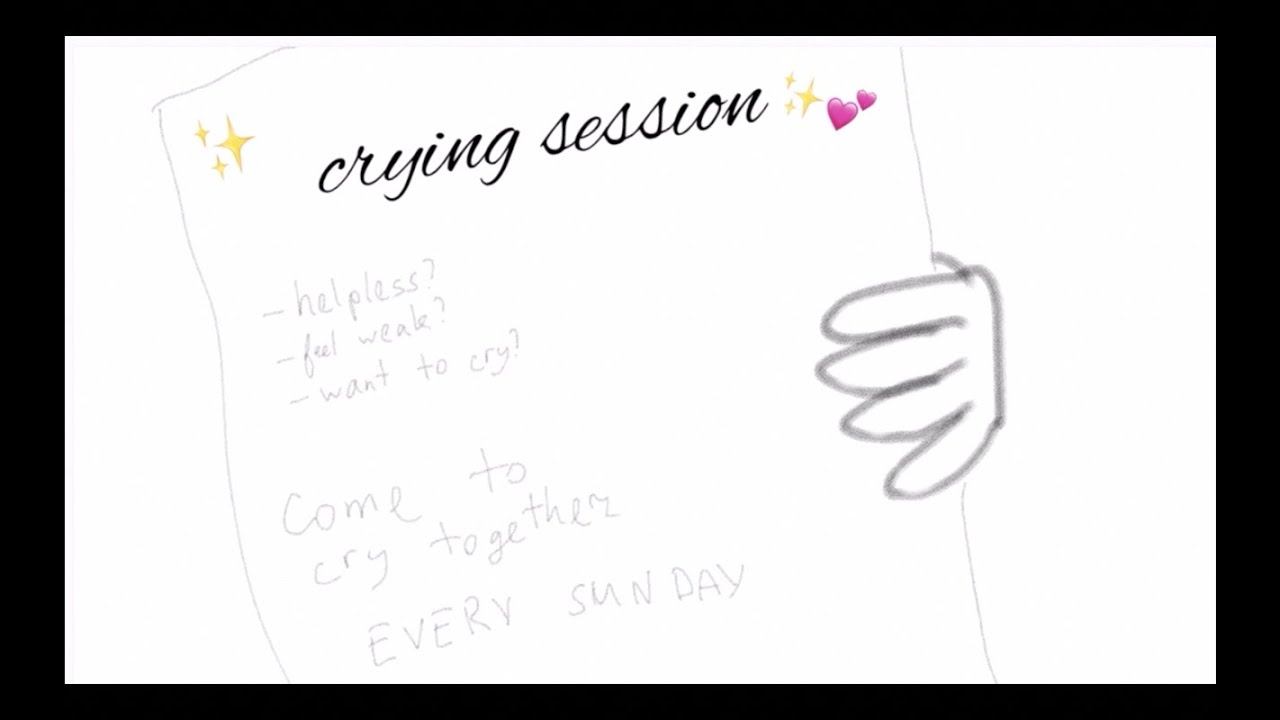 ✨ crying session ✨💕
- helpless?
- feel weak?
- want to cry?
Come to
cry together
EVERY SUNDAY